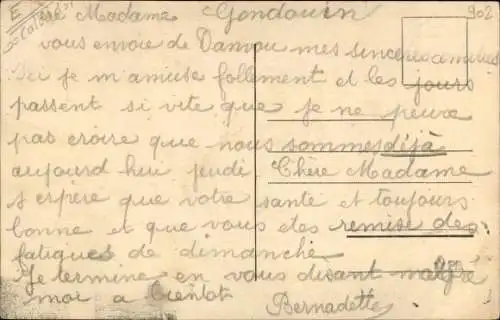 E
Calvados
902
Madame Gondouin
vous envoie de Damvou mes sincères amitiés
Ici je m'amuse follement et les jours
passent si vite que je ne peux
pas croire que nous sommes déjà
aujourd hui jeudi. Chère Madame
J espère que votre santé et toujours
bonne et que vous êtes remise des
fatigues de dimanche
Je termine en vous disant malgré
moi a bientot Bernadette